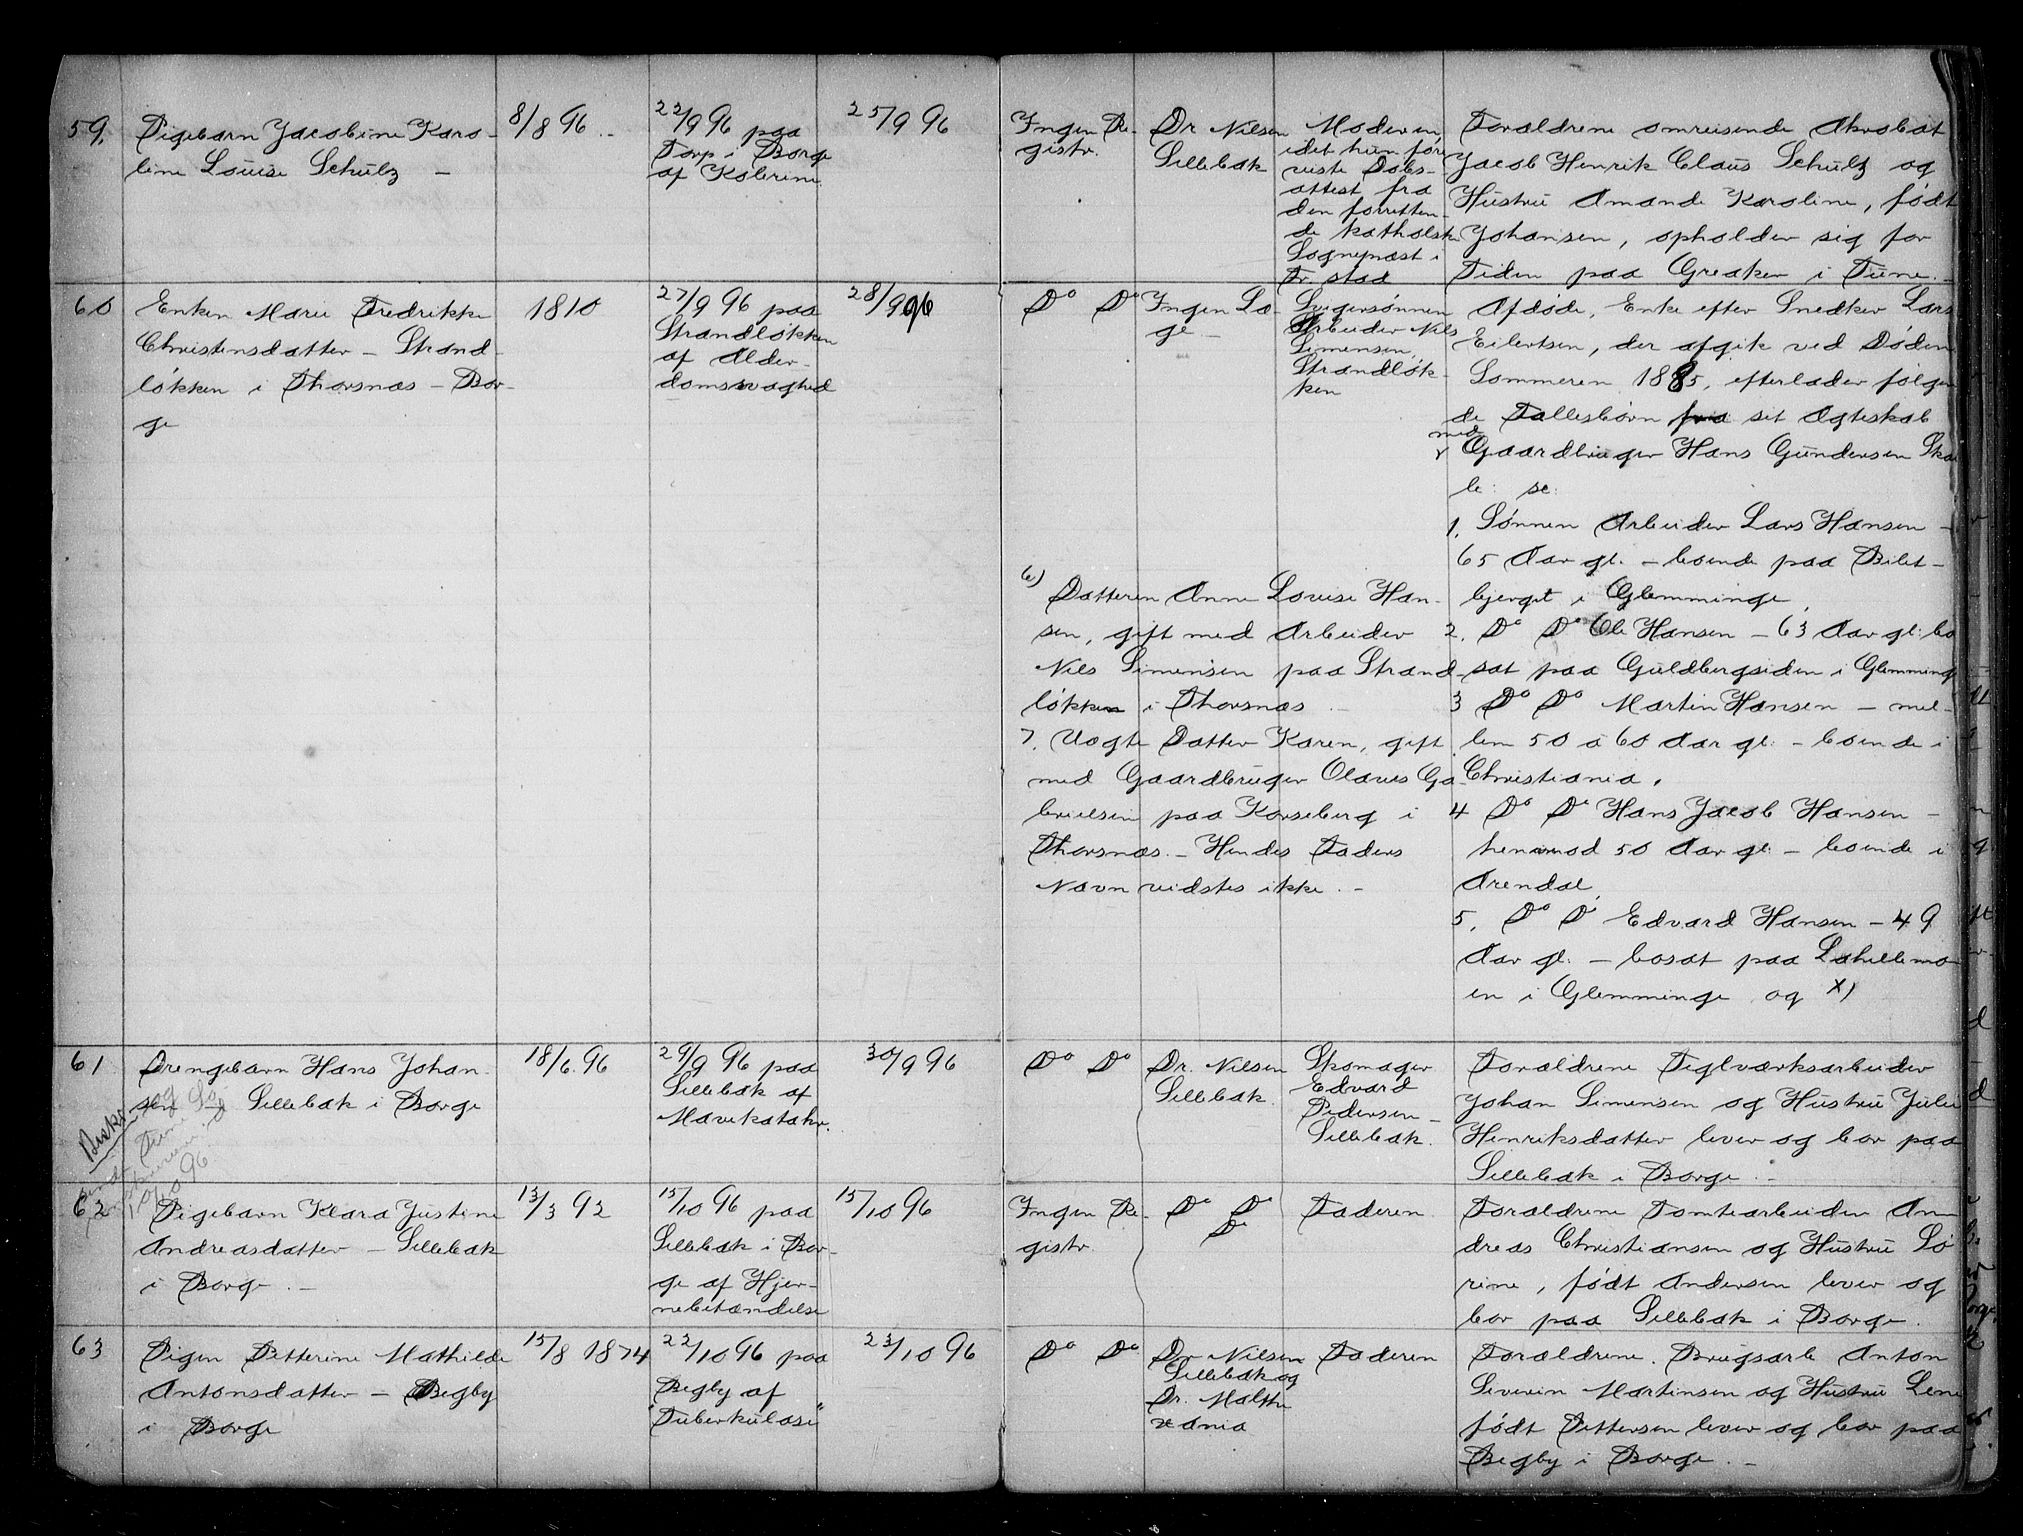 59.
Pigebarn Jacobine Karo-
line Louise Schulz –
8/8 96
22/9 96 paa
Torp i Borge
af Kolerine
25/9 96
Ingen Re-
gistr.
Dr Nilsen
Sellebak
Moderen,
idet hun fore
viste Dobs-
attest fra
den forretten-
de katholske
Sognepræst i
Fr.stad
Forældrene omreisende Akrobat
Jacob Henrik Claus Schulz og
Hustru Amande Karoline, født
Johansen, opholder sig for
Tiden paa Greaker i Tune.
60
Enken Marie Fredrikke
Christensdatter – Strand-
løkken i Thorsnæs – Bor-
ge
1810
27/9 96 paa
Strandløkken
af Alder-
domssvaghed
28/9 96
Do Do
Ingen Læ-
ge –
Svigersønnen
Arbeider Nils
Simensen,
Strandløk-
ken
Afdøde, Enke efter Snedker Lars
Eilertsen, der afgik ved Døden
Sommeren 1885, efterlader følgen
de Fællesbørn fra sit Ægteskab
med
Gaardbruger Hans Gundersen Ska
le: se:
1. Sønnen Arbeider Lars Hansen –
65 Aar gl. – boende paa Bilet-
bjerget i Glemminge,
2. Do Do Ole Hansen – 63 Aar gl: bo
sat paa Guldbergsiden i Glemming
3 Do Do Martin Hansen – mel-
lem 50 à 60 Aar gl: – boende i
Christiania.
4 Do Do Hans Jacob Hansen –
henimod 50 Aar gl: – boende i
Arendal,
5. Do Do Edvard Hansen – 49
Aar gl: – bosat paa Lahellemo
en i Glemminge og x)
6)
Datteren Anne Lovise Han-
sen, gift med Arbeider
Nils Simensen paa Strand-
løkken i Thorsnæs –
7. Uægte Datter Karen, gift
med Gaardbruger Olaves Ga-
brielsen paa Korseberg i
Thorsnæs. – Hendes Faders
Navn vidstes ikke. –
61
Drengebarn Hans Johan-
sen – Sellebak i Borge
18/6 96
29/9 96 paa
Sellebak af
Mavekatahr.
30/9 96
Do Do
Dr. Nilsen
Sellebak
Skomager
Edvard
Pedersen –
Sellebak.
Forældrene Teglværksarbeider
Johan Simensen og Hustru Julie
Henriksdatter lever og bor paa
Sellebak i Borge. –
10/10 96
62
Pigebarn Klara Justine
Andreasdatter – Sellebak
i Borge. –
13/3 92
15/10 96 paa
Sellebak i Bor-
ge af Hjer-
nebetændelse
15/10 96
Ingen Re-
gistr.
Do Do
Do
Faderen
Forældrene Tomtearbeider An
dreas Christiansen og Hustru Lo
rine, født Andersen lever og
bor paa Sellebak i Borge.
63
Pigen Petterine Mathilde
Antonsdatter – Begby
i Borge
15/8 1874
22/10 96 paa
Begby af
"Tuberkulose"
23/10 96
Do Do
Dr Nilsen
Sellebak og
Dr. Malthe
Xania
Faderen
Forældrene. Brugsarb Anton
Severin Martinsen og Hustru Lene
født Pettersen lever og bor paa
Begby i Borge. –